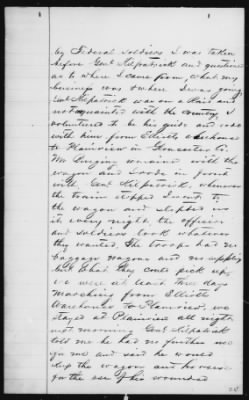 by Federal soldiers I was taken
before Genl Kilpatrick and questioned
as to where I came from, what my
business was & where I was going,
Genl Kilpatrick was on a Raid and
not acquainted with the country, I
volunteered to be his guide and rode
with him from Elliotts warehouse
to Plainview in Gloucester Co.
Mr remained with the
wagon and I rode in front
with Genl Kilpatrick, whenever
the train stopped I went to
the wagon and I slept in
it every night, the officers
and soldiers took whatever
they wanted. The troops had no
baggage wagons and no supplies
but what they could pick up,
we were at least three days
marching from Elliotts
warehouse to Plainview. we
stayed at Plainview all night,
next morning Genl Kilpatrick
told me he had no further use
for me and said he would
keep the wagon and horses
for the use of his wounded